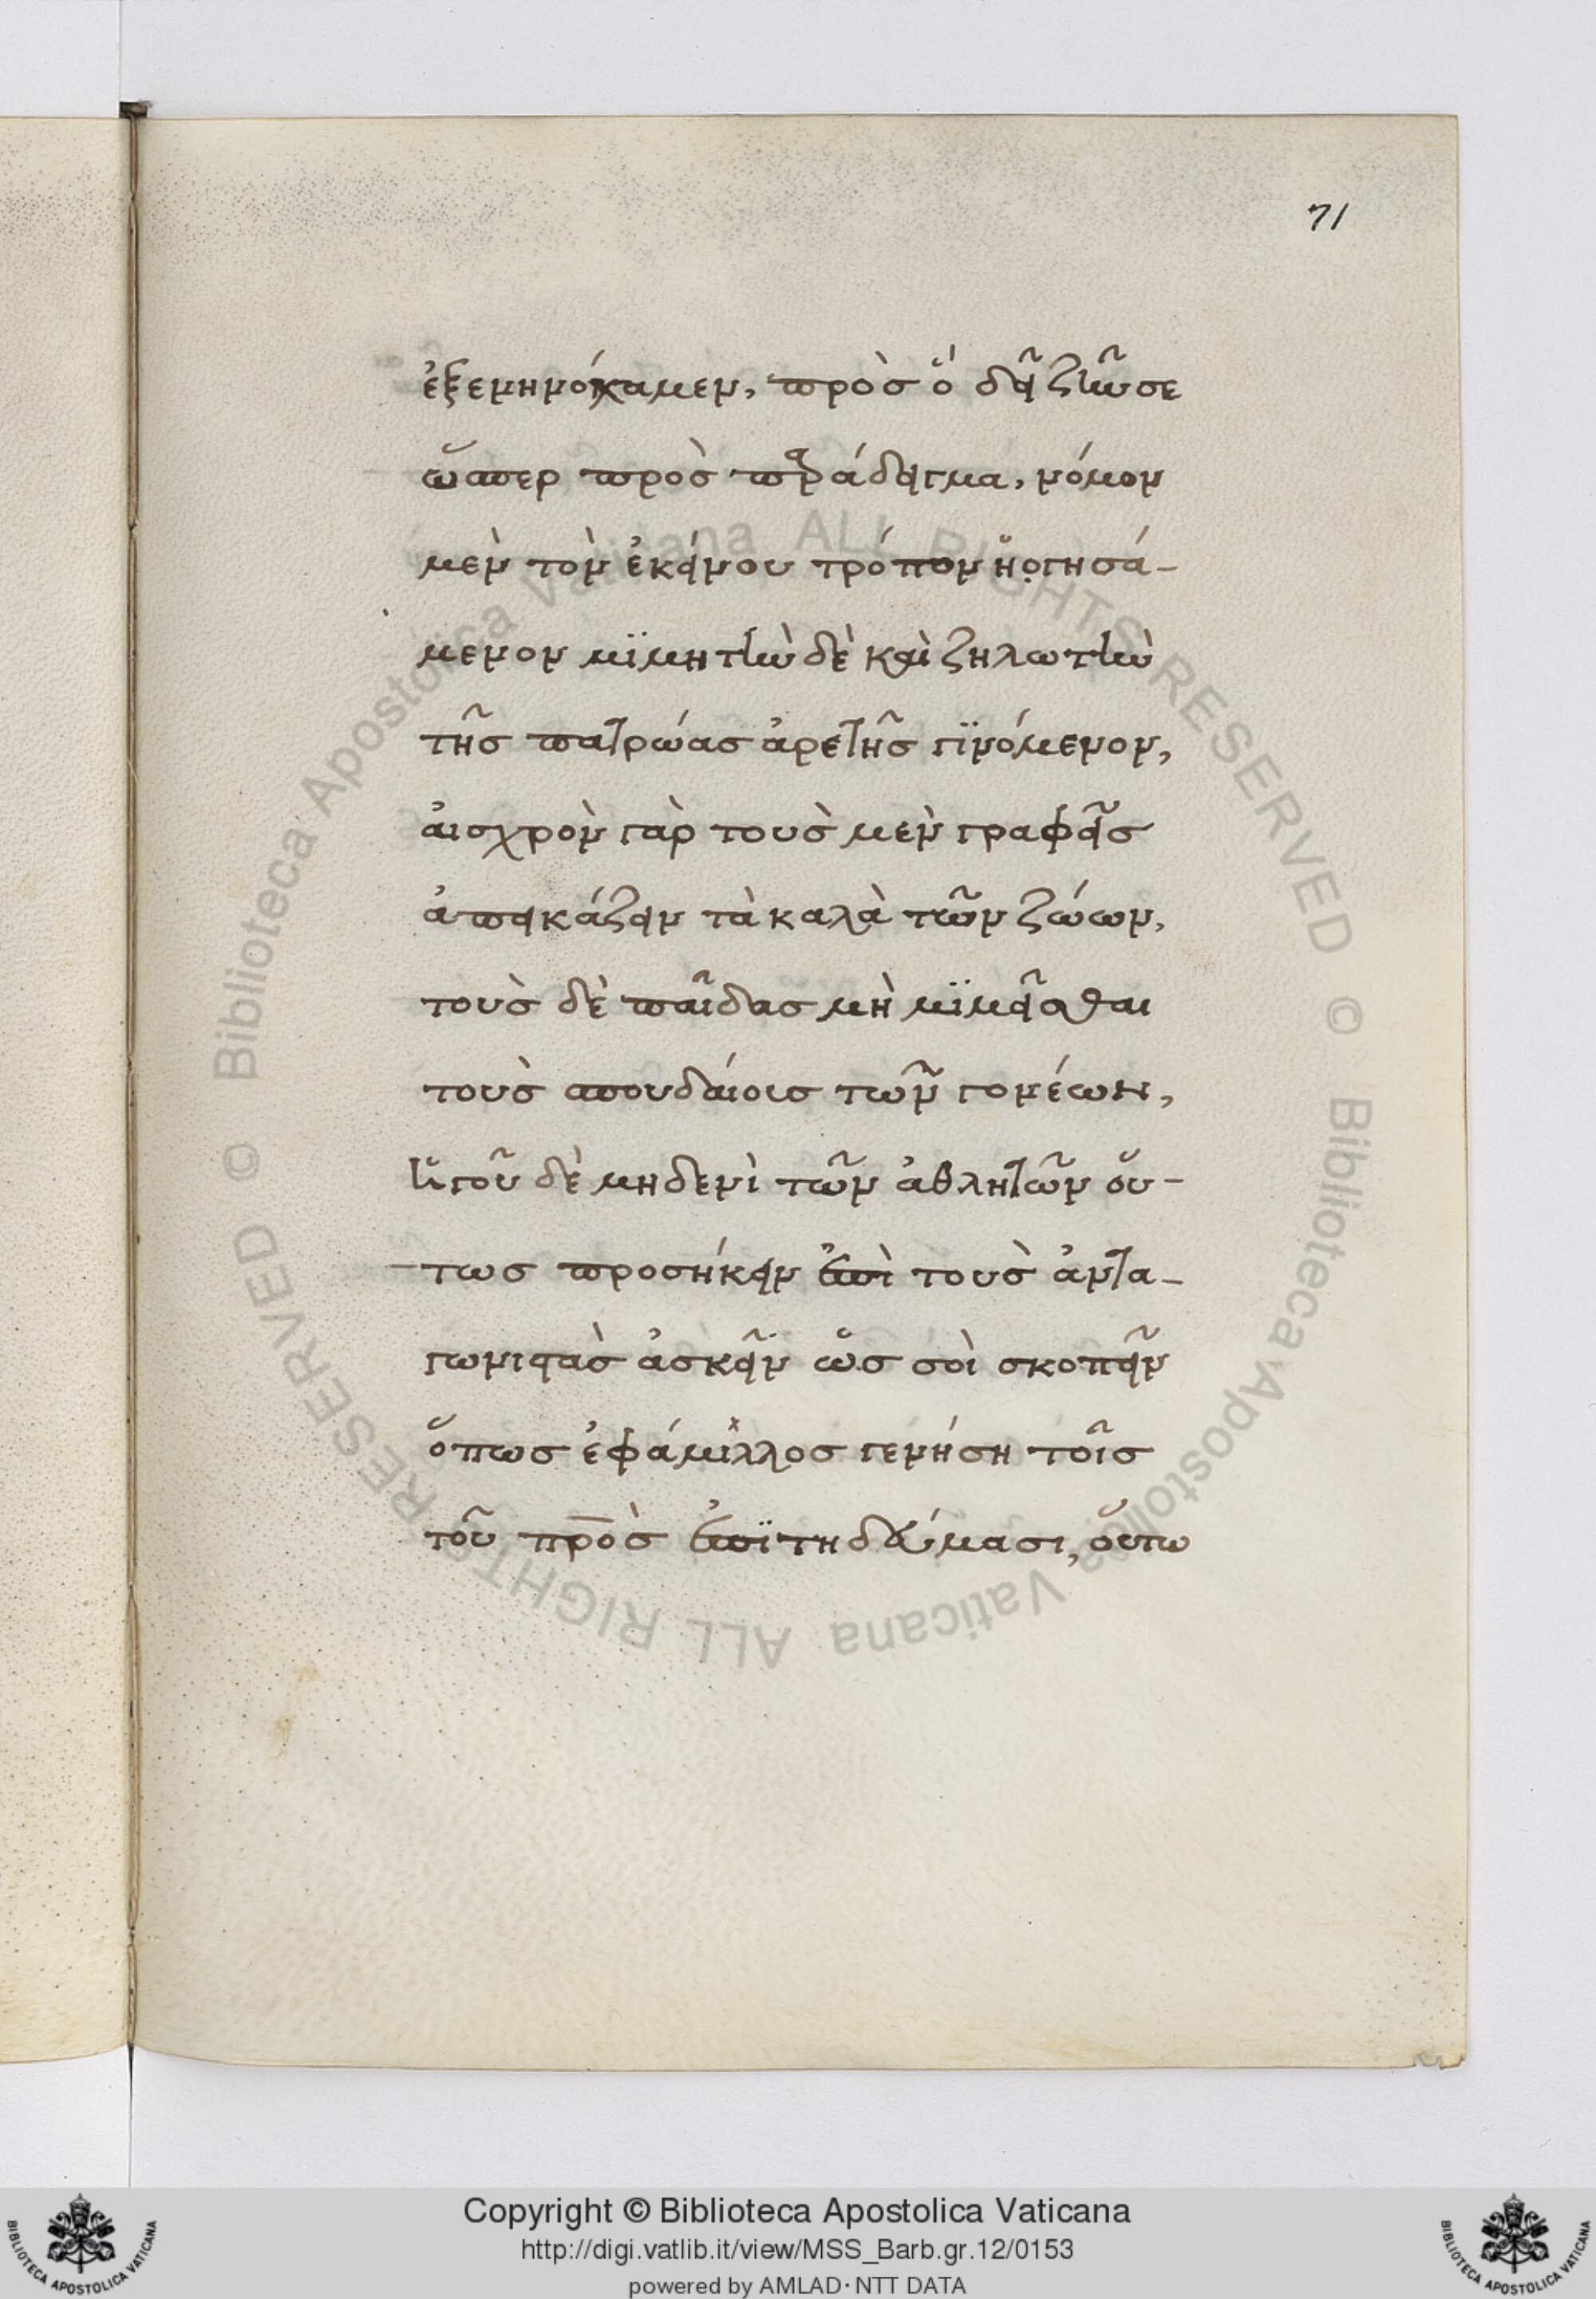 71
ἐξενηνόχαμεν, πρὸσ ὅ δεῖ ζῆν σε
ὥσπερ πρὸσ παράδειγμα, νόμον
μὲν τὸν ἐκείνου τρόπον ἡγησά-
μενον μϊμητὴν δὲ καὶ ζηλωτὴν
τῆσ πατρώασ ἀρετῆσ γϊνόμενον,
ἀισχρὸν γὰρ τουσ μὲν γραφεῖσ
ἀπεικάζειν τὰ καλὰ τῶν ζώων,
τουσ δὲ παῖδασ μὴ μϊμεῖσθαι
τουσ σπουδάιοισ τῶν γονέων,
ἡγοῦ δὲ μηδενὶ τῶν ἀθλητῶν οὕ-
τωσ προσήκειν ἐπὶ τουσ ἀντα-
γωνιστὰσ ἀσκεῖν ὥσ σοὶ σκοπεῖν
ὅπωσ ἐφάμιλλοσ γενήση τοῖσ
τοῦ πρ̅ὸσ ἐπϊτηδεύμασι, οὕτω
Copyright © Biblioteca Apostolica Vaticana
http://digi.vatlib.it/view/MSS_Barb.gr.12/0153
powered by AMLAD·NTT DATA
BIBLIOTECA APOSTOLICA VATICANA
BIBLIOTECA APOSTOLICA VATICANA
© Biblioteca Apostolica Vaticana ALL RIGHTS RESERVED © Biblioteca Apostolica Vaticana ALL RIGHTS RESERVED